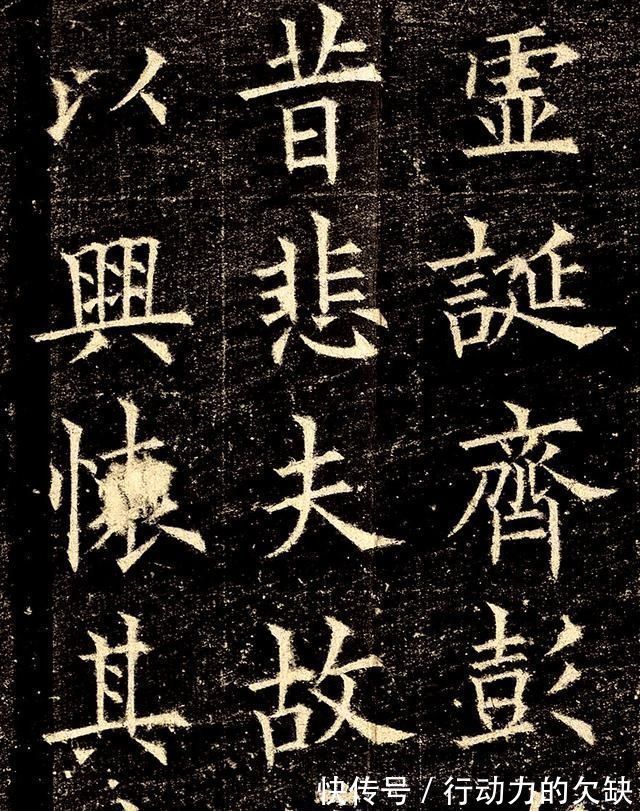 虛誕齊彭
昔悲夫故
以興懷其
快传号/行动力的欠缺